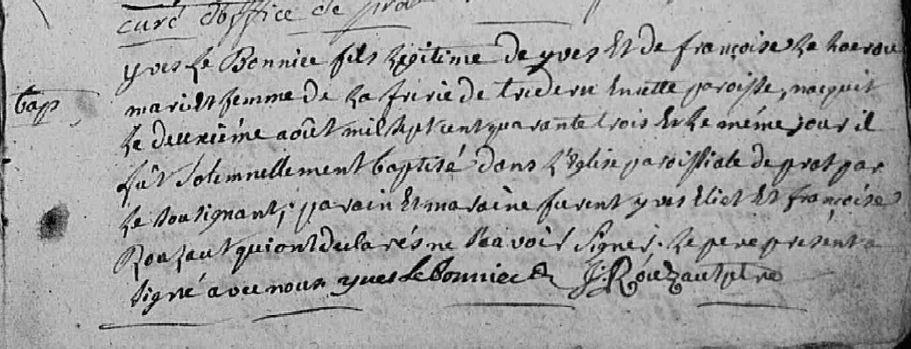 curé d'office de prat
yves Le Bonniec fils Légitime de yves Et de françoise Le
mari Et femme de La frerie de trederu En cette paroisse, nacquit
bap Le deuxième août mil Sept cent quarante trois Et Le même jour il
fût Solemnellement baptisé dans L'Eglise paroissiale de prat par
Le Sousignant, parain Et maraine furent yves Eliet Et françoise
Rouzaut qui ont declarés ne Scavoir Signer. Le pere present a
Signé avec nous yves Le Bonniec J: Roüzaut ptre